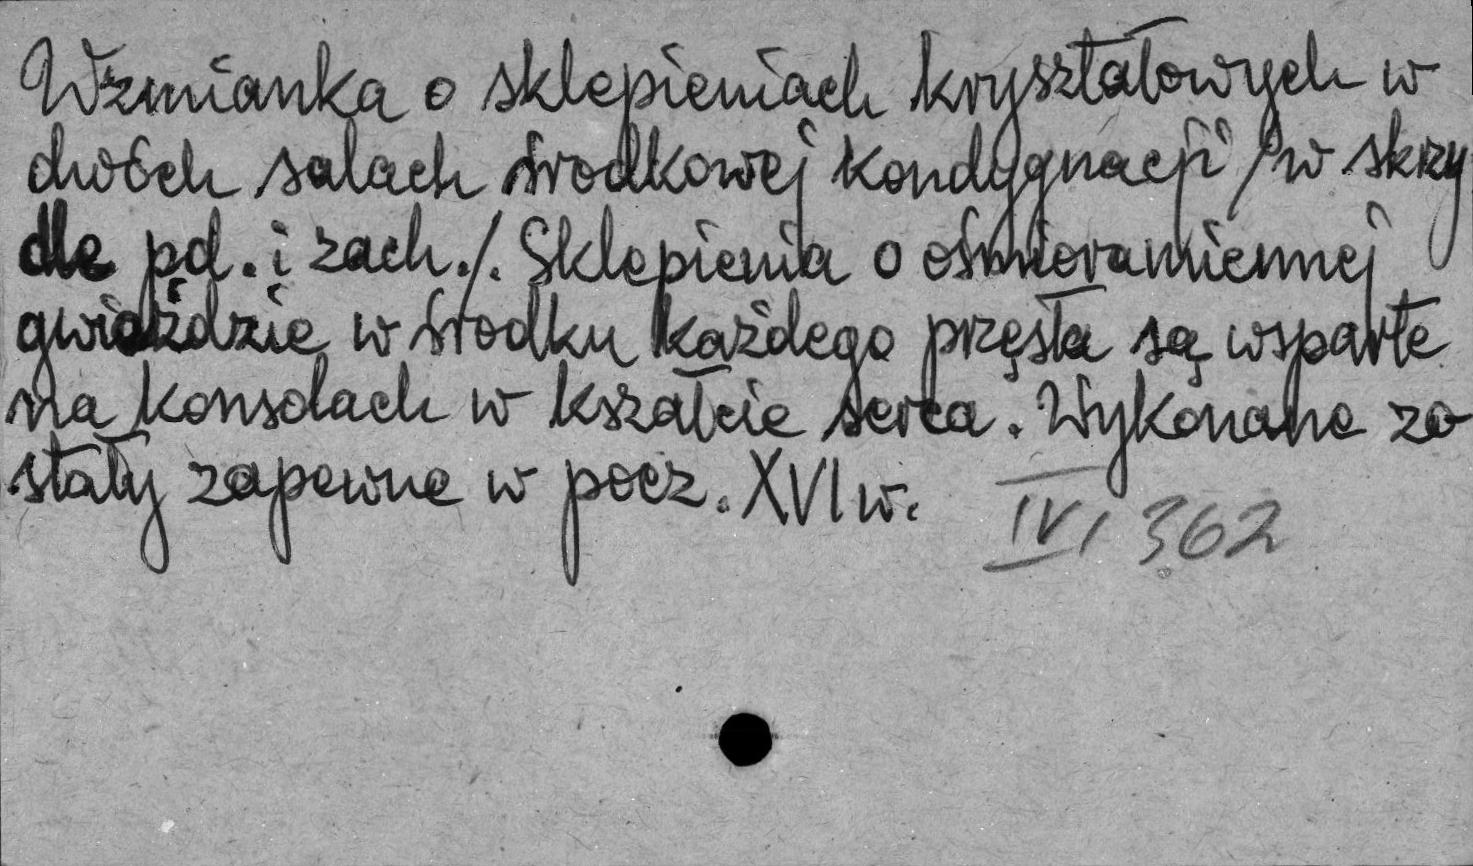 Wzmianka o sklepieniach kryształowych w
dwóch salach środkowej kondygnacji /w skrzy
dle pd. i zach./. Sklepienia o ośmioramiennej
gwieździe w środku każdego przęsła są wsparte
na konsolach w kszałcie serca. Wykonane zo
stały zapewne w pocz. XVI w.
IV/362